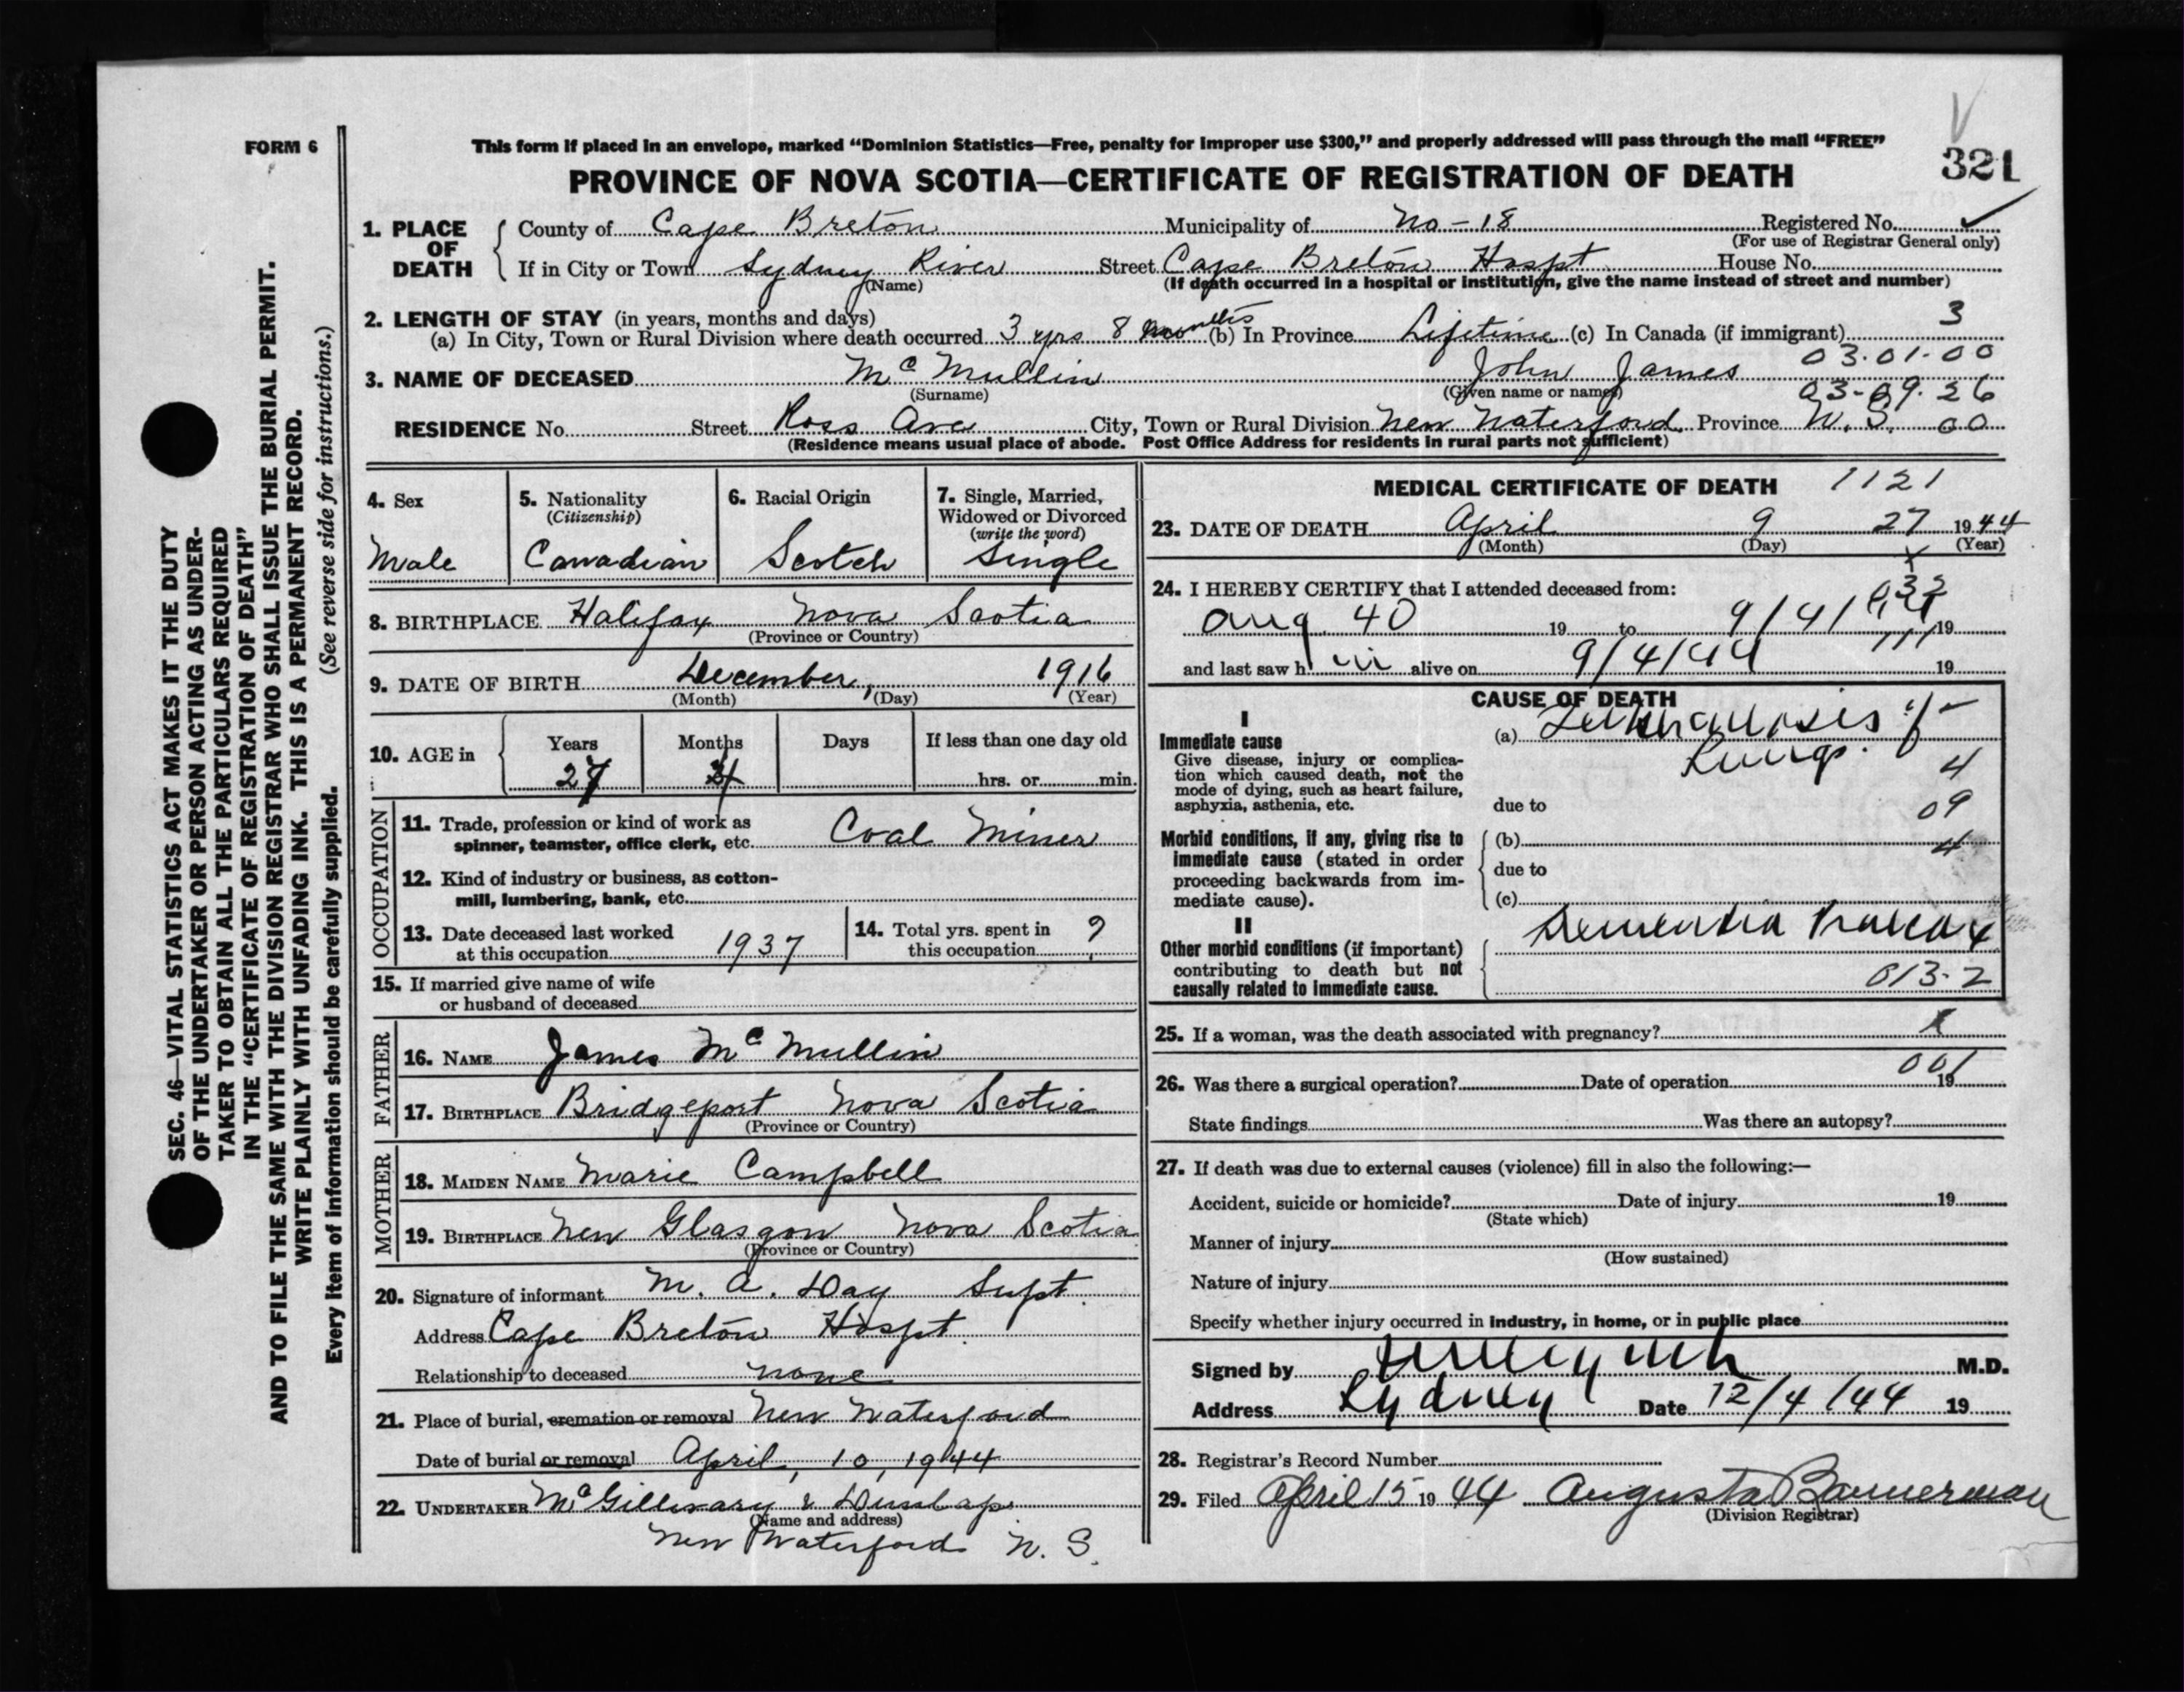 FORM 6
This form if placed in an envelope, marked “Dominion Statistics—Free, penalty for improper use $300,” and properly addressed will pass through the mail “FREE”
321
PROVINCE OF NOVA SCOTIA—CERTIFICATE OF REGISTRATION OF DEATH
SEC. 46—VITAL STATISTICS ACT MAKES IT THE DUTY
OF THE UNDERTAKER OR PERSON ACTING AS UNDER-
TAKER TO OBTAIN ALL THE PARTICULARS REQUIRED
IN THE “CERTIFICATE OF REGISTRATION OF DEATH”
AND TO FILE THE SAME WITH THE DIVISION REGISTRAR WHO SHALL ISSUE THE BURIAL PERMIT.
WRITE PLAINLY WITH UNFADING INK. THIS IS A PERMANENT RECORD.
Every item of information should be carefully supplied. (See reverse side for instructions.)
1. PLACE OF DEATH
County of Cape Breton Municipality of No-18 Registered No.
(For use of Registrar General only)
If in City or Town Sydney River Street Cape Breton Hospt House No.
(Name) (If death occurred in a hospital or institution, give the name instead of street and number)
2. LENGTH OF STAY (in years, months and days)
(a) In City, Town or Rural Division where death occurred 3 yrs 8 months (b) In Province Lifetime (c) In Canada (if immigrant) 3
03.01.00
3. NAME OF DECEASED McMullin John James
(Surname) (Given name or names) 03-09.26
RESIDENCE No. Street Ross Ave City, Town or Rural Division New Waterford Province N.S. 00
(Residence means usual place of abode. Post Office Address for residents in rural parts not sufficient)
4. Sex
Male
5. Nationality
(Citizenship)
Canadian
6. Racial Origin
Scotch
7. Single, Married,
Widowed or Divorced
(write the word)
Single
8. BIRTHPLACE Halifax Nova Scotia
(Province or Country)
9. DATE OF BIRTH December, 1916
(Month) (Day) (Year)
10. AGE in
Years Months Days If less than one day old
27 hrs. or min.
OCCUPATION
11. Trade, profession or kind of work as
spinner, teamster, office clerk, etc. Coal Miner
12. Kind of industry or business, as cotton-
mill, lumbering, bank, etc.
13. Date deceased last worked
at this occupation 1937
14. Total yrs. spent in
this occupation ?
15. If married give name of wife
or husband of deceased
FATHER
16. NAME James McMullin
17. BIRTHPLACE Bridgeport Nova Scotia
(Province or Country)
MOTHER
18. MAIDEN NAME Marie Campbell
19. BIRTHPLACE New Glasgow Nova Scotia
(Province or Country)
20. Signature of informant M. A. Day Supt.
Address Cape Breton Hospt.
Relationship to deceased none
21. Place of burial, cremation or removal New Waterford
Date of burial or removal April, 10, 1944
22. UNDERTAKER McGillivary & Dunlap
(Name and address)
New Waterford N. S.
MEDICAL CERTIFICATE OF DEATH 1121
23. DATE OF DEATH April 9 27 1944
(Month) (Day) (Year)
24. I HEREBY CERTIFY that I attended deceased from:
Aug 40 19 to 9/4/ 19
and last saw h im alive on 9/4/44 19
CAUSE OF DEATH
I
Immediate cause
Give disease, injury or complica-
tion which caused death, not the
mode of dying, such as heart failure,
asphyxia, asthenia, etc.
(a) Tuberculosis of
Lungs.
4
due to
09
Morbid conditions, if any, giving rise to
immediate cause (stated in order
proceeding backwards from im-
mediate cause).
(b)
4
due to
(c)
II
Other morbid conditions (if important)
contributing to death but not
causally related to immediate cause.
Dementia Praecox
013-2
25. If a woman, was the death associated with pregnancy? X
001
26. Was there a surgical operation? Date of operation 19
State findings Was there an autopsy?
27. If death was due to external causes (violence) fill in also the following:—
Accident, suicide or homicide? Date of injury 19
(State which)
Manner of injury
(How sustained)
Nature of injury
Specify whether injury occurred in industry, in home, or in public place
Signed by M.D.
Address Sydney Date 12/4/44 19
28. Registrar’s Record Number
29. Filed April 15 19 44 Augusta Bannerman
(Division Registrar)